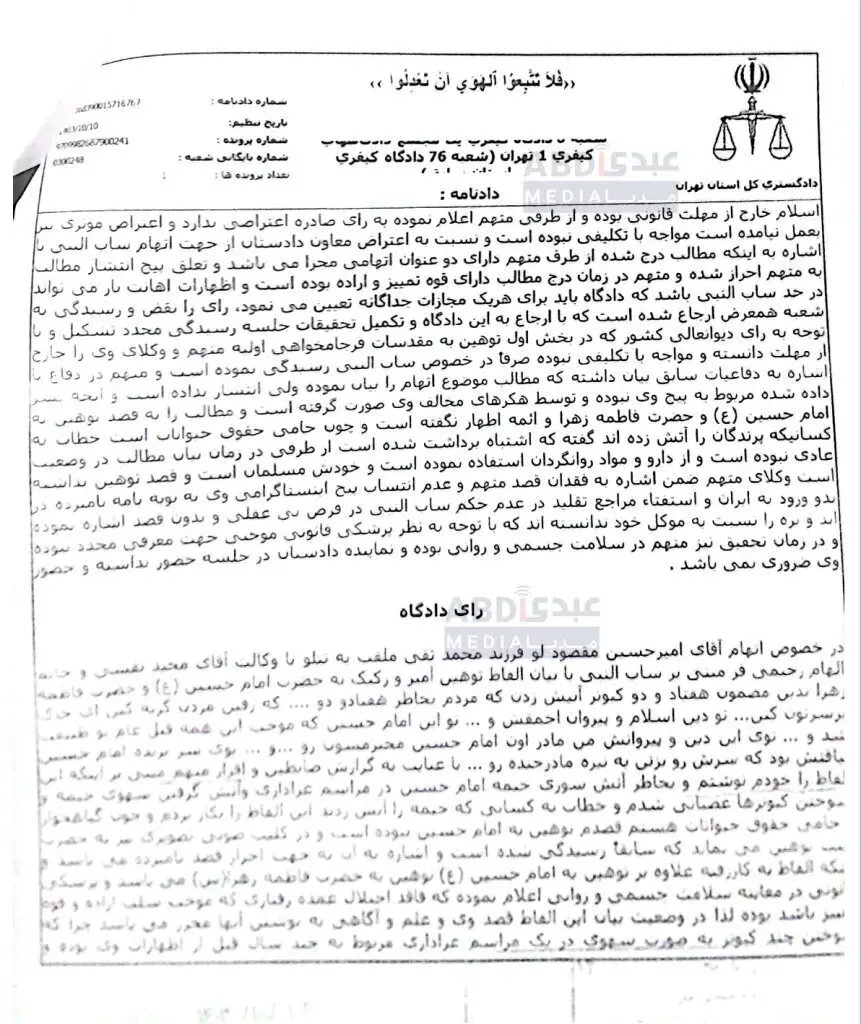 ((فَلاَ تَتَّبِعُوا اَلهَوي اَنْ تَعدِلُوا))
شماره دادنامه :
تاریخ تنظیم: 1403/10/10
شماره پرونده : 9709982687900241
شماره بایگانی شعبه : 0300248
تعداد پرونده ها : 1
کیفري 1 تهران (شعبه 76 دادگاه کیفري
دادگستري کل استان تهران
دادنامه :
عبدی ABDI
MEDIA مدیا
اسلام خارج از مهلت قانونی بوده و از طرفی متهم اعلام نموده به رای صادره اعتراضی ندارد و اعتراض موثری نیز
بعمل نیامده است مواجه با تکلیفی نبوده است و نسبت به اعتراض معاون دادستان از جهت اتهام ساب النبی با
اشاره به اینکه مطالب درج شده از طرف متهم دارای دو عنوان اتهامی مجزا می باشد و تعلق پیج انتشار مطالب
به متهم احراز شده و متهم در زمان درج مطالب دارای قوه تمییز و اراده بوده است و اظهارات اهانت بار می تواند
در حد ساب النبی باشد که دادگاه باید برای هریک مجازات جداگانه تعیین می نمود، رای را نقض و رسیدگی به
شعبه همعرض ارجاع شده است که با ارجاع به این دادگاه و تکمیل تحقیقات جلسه رسیدگی مجدد تشکیل و با
توجه به رای دیوانعالی کشور که در بخش اول توهین به مقدسات فرجامخواهی اولیه متهم و وکلای وی را خارج
از مهلت دانسته و مواجه با تکلیفی نبوده صرفا در خصوص ساب النبی رسیدگی نموده است و متهم در دفاع با
اشاره به دفاعیات سابق بیان داشته که مطالب موضوع اتهام را بیان نموده ولی انتشار نداده است و آنچه نشر
داده شده مربوط به پیج وی نبوده و توسط هکرهای مخالف وی صورت گرفته است و مطالب را به قصد توهین به
امام حسین (ع) و حضرت فاطمه زهرا و ائمه اظهار نگفته است و چون حامی حقوق حیوانات است خطاب به
کسانیکه پرندگان را آتش زده اند گفته که اشتباه برداشت شده است از طرفی در زمان بیان مطالب در وضعیت
عادی نبوده است و از دارو و مواد روانگردان استفاده نموده است و خودش مسلمان است و قصد توهین نداشته
است وکلای متهم ضمن اشاره به فقدان قصد متهم و عدم انتساب پیج اینستاگرامی وی به توبه نامه نامبرده در
بدو ورود به ایران و استفتاء مراجع تقلید در عدم حکم ساب النبی در فرض بی عقلی و بدون قصد اشاره نموده
اند و بزه را نسبت به موکل خود ندانسته اند که با توجه به نظر پزشکی قانونی موجبی جهت معرفی مجدد نبوده
و در زمان تحقیق نیز متهم در سلامت جسمی و روانی بوده و نماینده دادستان در جلسه حضور نداشته و حضور
وی ضروری نمی باشد .
رای دادگاه
عبدی ABDI
MEDIA مدیا
در خصوص اتهام آقای امیرحسین مقصود لو فرزند محمد تقی ملقب به تتلو با وکالت آقای مجید نقشی و خانم
الهام رحیمی فر مبنی بر ساب النبی با بیان الفاظ توهین آمیز و رکیک به حضرت امام حسین (ع) و حضرت فاطمه
زهرا بدین مضمون هفتاد و دو کبوتر آتیش زدن که مردم بخاطر هفتادو دو .... که رفتن مردن گریه کنن ای خاک
برسرتون کنن... تو دین اسلام و پیروان احمقش و ... تو این امام حسین که موجب این همه قتل عام تو طبیعت
شد و ... توی این دین و پیروانش من مادر اون امام حسین محترمتون رو ...و ... توی سر بریده امام حسین
بود که سرش رو بزنن به نیزه مادرجنده رو ... با عنایت به گزارش ضابطین و اقرار متهم مبنی بر اینکه این
الفاظ را خودم نوشتم و بخاطر آتش سوزی خیمه امام حسین در مراسم عزاداری وآتش گرفتن سهوی خیمه و
سوختن کبوترها عصبانی شدم و خطاب به کسانی که خیمه را آتش زدند این الفاظ را بکار بردم و چون گیاهخوار
حامی حقوق حیوانات هستم قصدم توهین به امام حسین نبوده است و در کلیپ صوتی تصویری نیز به حضرت
توهین می نماید که سابقا رسیدگی شده است و اشاره به آن به جهت احراز قصد نامبرده می باشد و
الفاظ به کاررفته علاوه بر توهین به امام حسین (ع) توهین به حضرت فاطمه زهرا(س) می باشد و پزشکی
قانونی در معاینه سلامت جسمی و روانی اعلام نموده که فاقد اختلال عمده رفتاری که موجب سلب اراده و قوه
تمییز باشد بوده لذا در وضعیت بیان این الفاظ قصد وی و علم و آگاهی به نوشتن آنها محرز می باشد چرا که
سوختن چند کبوتر به صورت سهوی در یک مراسم عزاداری مربوط به چند سال قبل از اظهارات وی بوده و